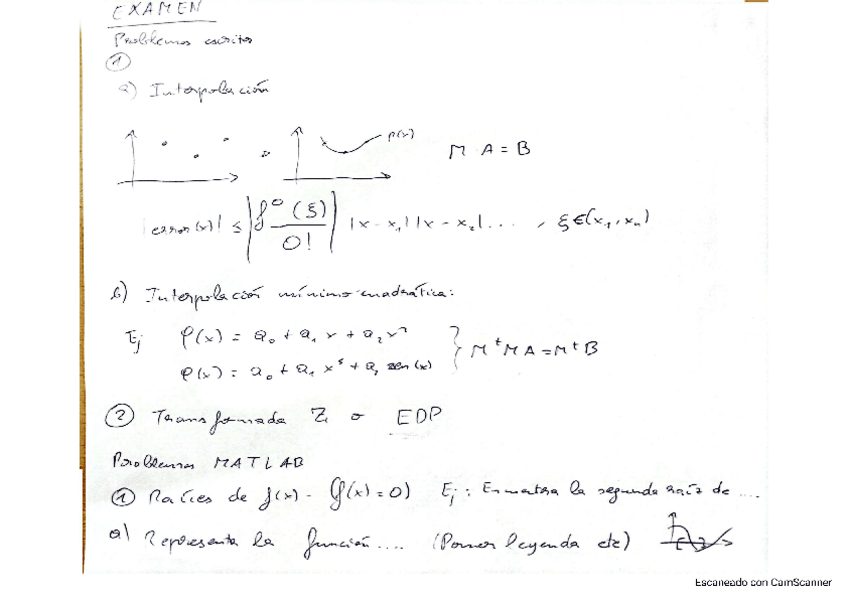 EXAMEN
Problemas escritos
①
a) Interpolación
p(x)
M A = B
|error(x)| ≤ |f⁰(ξ)/0!| |x - x₁| |x - x₂| ... , ξ ∈ (x₁, xₙ)
b) Interpolación mínimo cuadrática:
Ej P(x) = a₀ + a₁ x + a₂ x²
P(x) = a₀ + a₁ x⁵ + a₂ sen(x) } MᵗMA = MᵗB
② Transformada Z o EDP
Problemas MATLAB
① Raíces de f(x) - (f(x) = 0) Ej: Encuentra la segunda raíz de ....
a) Representa la función .... (Poner leyenda etc)
Escaneado con CamScanner